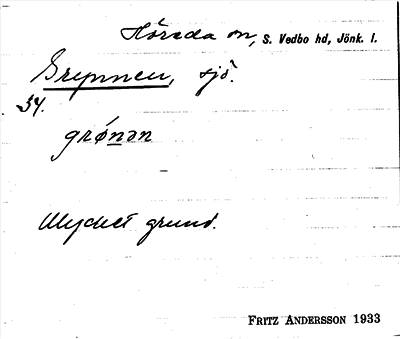 Höreda sn, S. Vedbo hd, Jönk. l.
Grynnen, sjö.
54.
grǿnən
Mycket grund.
FRITZ ANDERSSON 1933